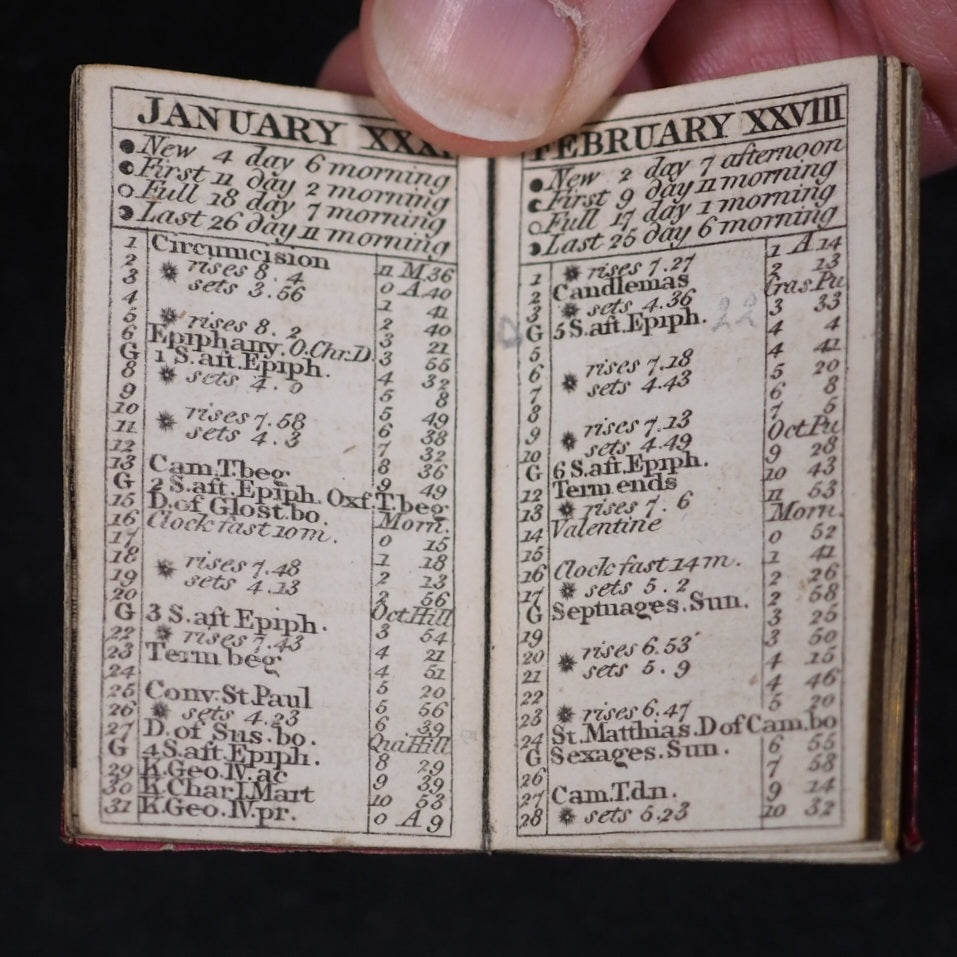 JANUARY XXXI
New 4 day 6 morning
First 11 day 2 morning
Full 18 day 7 morning
Last 26 day 11 morning
1 Circumcision 11 M.36
2 rises 8.4 0 A 40
3 sets 3.56 1 41
4 2 40
5 rises 8.2 3 21
6 Epiphany.O.Chr.D. 3 55
G 1 S.aft.Epiph. 4 32
8 sets 4.0 5 8
9 5 49
10 rises 7.58 6 38
11 sets 4.3 7 32
12 8 36
13 Cam.T.beg. 9 49
G 2 S.aft.Epiph. Oxf.T.beg
15 D.of Glost.bo. Morn.
16 Clock fast 10m. 0 15
17 1 18
18 rises 7.48 2 13
19 sets 4.13 2 56
20 Oct Hill
G 3 S.aft Epiph. 3 54
22 rises 7.43 4 21
23 Term beg 4 51
24 5 20
25 Conv.St.Paul 5 56
26 sets 4.23 6 39
27 D.of Sus.bo. Qua Hill
G 4 S.aft.Epiph. 8 29
29 K.Geo.IV.ac 9 39
30 K.Char I.Mart 10 53
31 K.Geo.IV.pr. 0 A 9
FEBRUARY XXVIII
New 2 day 7 afternoon
First 9 day 11 morning
Full 17 day 1 morning
Last 25 day 6 morning
1 rises 7.27 1 A.14
2 Candlemas 2 13
3 sets 4.36 Cras.Pu
G 5 S.aft.Epiph. 22 3 33
5 4 4
6 rises 7.18 4 41
7 sets 4.43 5 20
8 6 8
9 rises 7.13 7 5
10 sets 4.49 Oct.Pu
G 6 S.aft.Epiph. 9 28
12 Term ends 10 43
13 rises 7.6 11 53
14 Valentine Morn.
15 0 52
16 Clock fast 14m. 1 41
17 sets 5.2 2 26
G Septuages.Sun. 2 58
19 3 25
20 rises 6.53 3 50
21 sets 5.9 4 15
22 4 46
23 rises 6.47 5 20
24 St.Matthias.D of Cam.bo
G Sexages.Sun. 6 55
26 7 58
27 Cam.T.dn. 9 14
28 sets 5.23 10 32